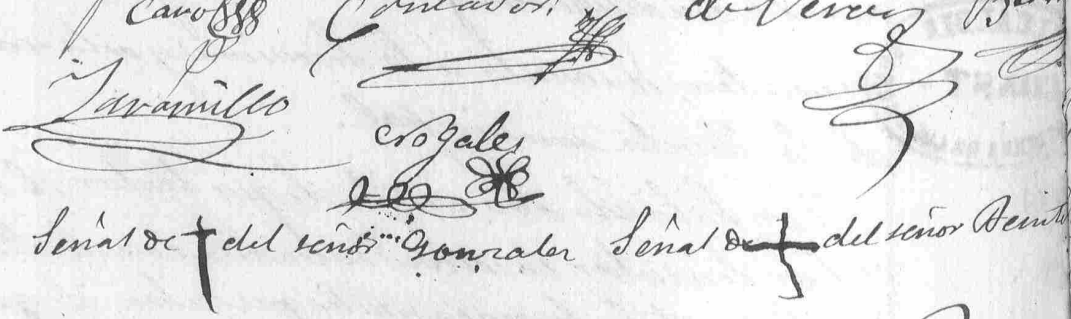 Caro Contador. de
Jaramillo
Rozales
Señal de + del señor Gonzales Señal de + del señor Benito